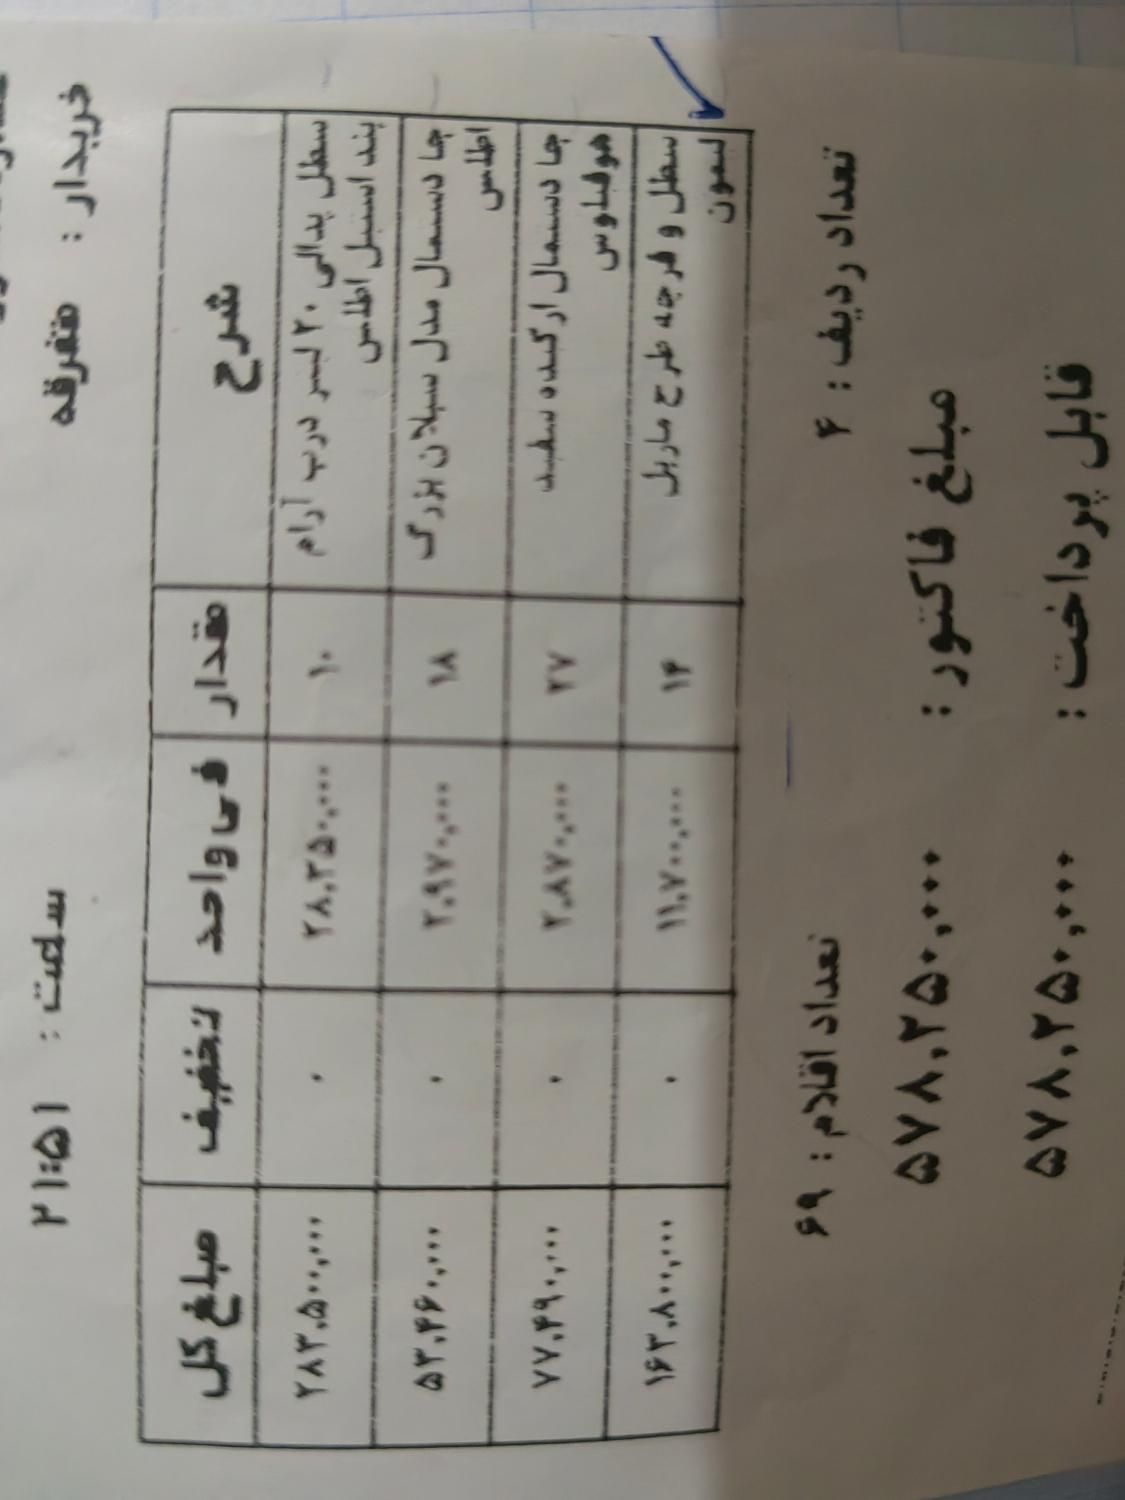 خریدار : متفرقه
ساعت : ۲۱:۵۱
شرح مقدار فی واحد تخفیف مبلغ کل
سطل پدالی ۲۰ لیتر درب آرام ۱۰ ۲۸,۳۵۰,۰۰۰ ۰ ۲۸۳,۵۰۰,۰۰۰
بند استیل اطلس
جا دستمال مدل سیلان بزرگ ۱۸ ۲,۹۷۰,۰۰۰ ۰ ۵۳,۴۶۰,۰۰۰
اطلس
جا دستمال ارکیده سفید ۲۷ ۲,۸۷۰,۰۰۰ ۰ ۷۷,۴۹۰,۰۰۰
هوفباوس
سطل و فرچه طرح ماربل ۱۴ ۱۱,۷۰۰,۰۰۰ ۰ ۱۶۳,۸۰۰,۰۰۰
لیمون
تعداد ردیف : ۴ تعداد اقلام : ۶۹
مبلغ فاکتور : ۵۷۸,۲۵۰,۰۰۰
قابل پرداخت : ۵۷۸,۲۵۰,۰۰۰